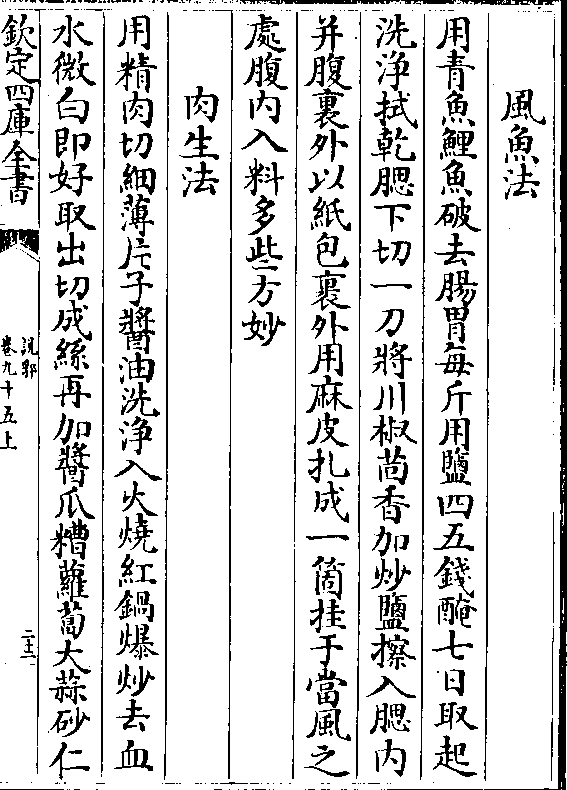 風魚法
用青魚鯉魚破去腸胃每斤用鹽四五錢醃七日取起
洗浄拭乾腮下切一刀將川椒茴香加炒鹽擦入腮内
并腹裏外以紙包裹外用麻皮扎成一箇挂于當風之
處腹内入料多些方妙
肉生法
用精肉切細薄片子醬油洗浄入火燒紅鍋爆炒去血
水微白即好取出切成絲再加醬瓜糟蘿蔔大蒜砂仁
欽定四庫全書
說郛
卷九十五上